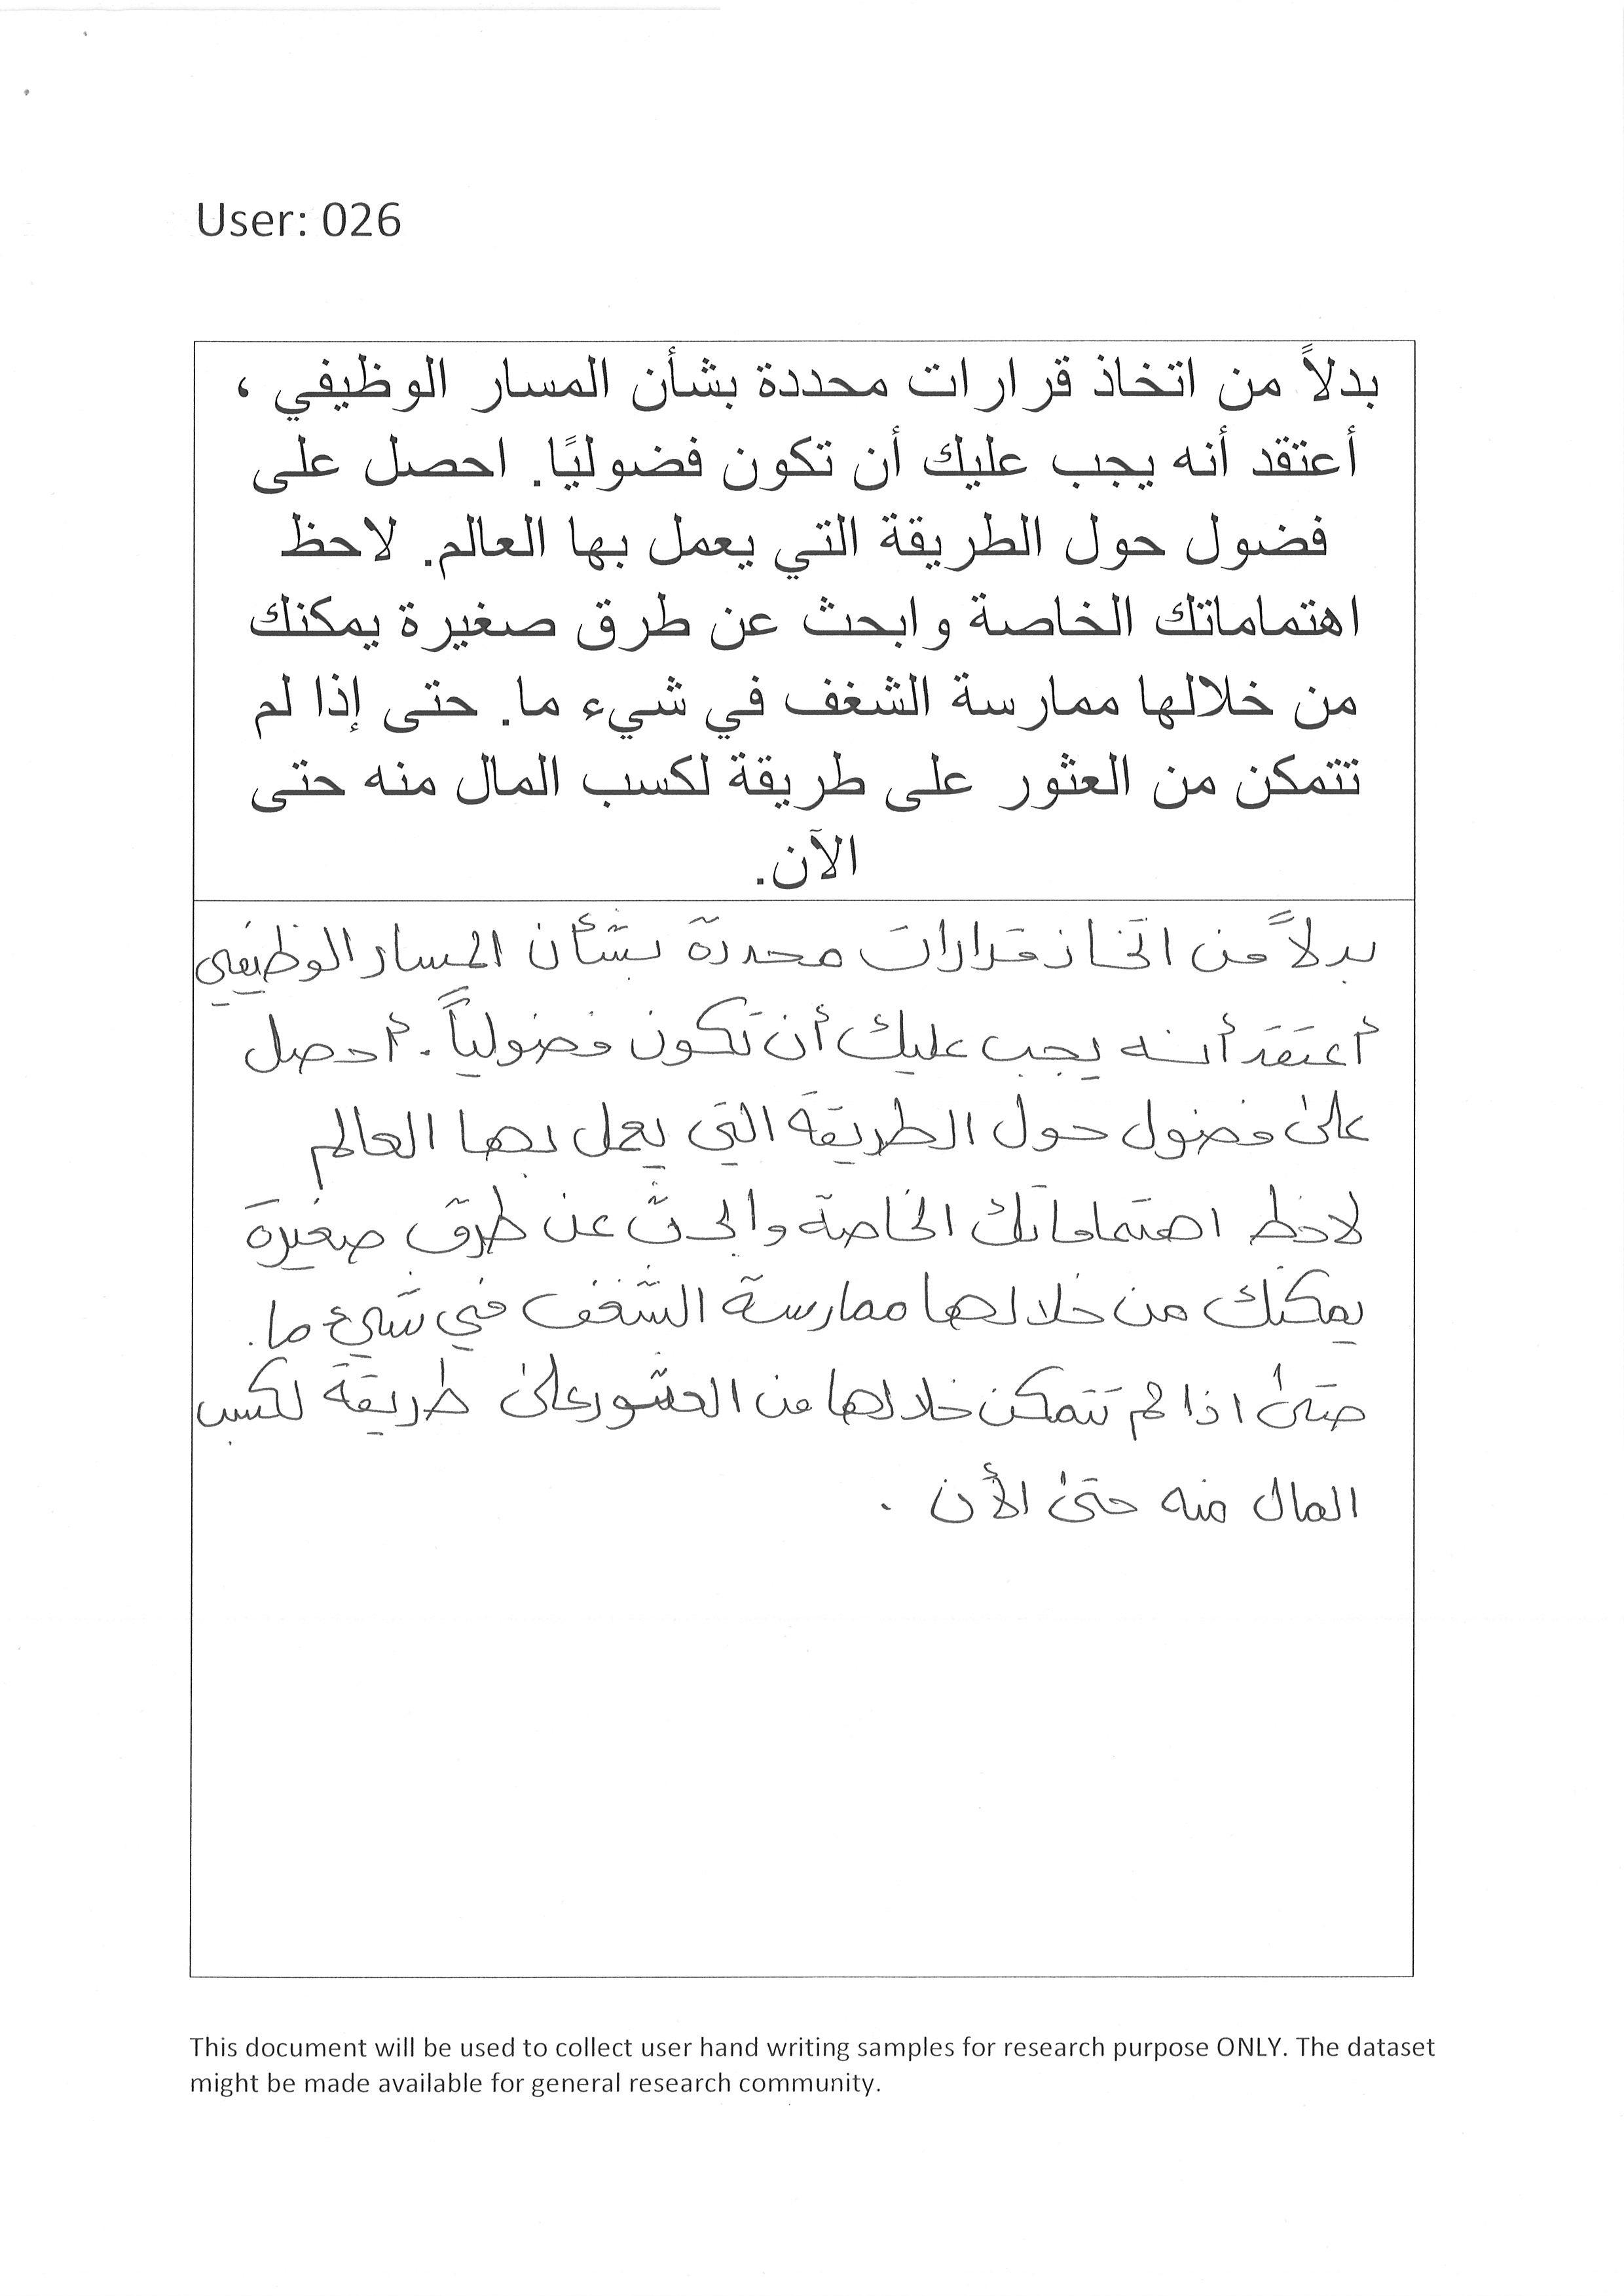 User: 026
بدلاً من اتخاذ قرارات محددة بشأن المسار الوظيفي ،
أعتقد أنه يجب عليك أن تكون فضوليًا. احصل على
فضول حول الطريقة التي يعمل بها العالم. لاحظ
اهتماماتك الخاصة وابحث عن طرق صغيرة يمكنك
من خلالها ممارسة الشغف في شيء ما. حتى إذا لم
تتمكن من العثور على طريقة لكسب المال منه حتى
الآن.
بدلاً من اتخاذ قرارات محددة بشأن المسار الوظيفي
أعتقد أنه يجب عليك أن تكون فضولياً. أحصل
على فضول حول الطريقة التي يعمل بها العالم
لاحظ اهتماماتك الخاصة وابحث عن طرق صغيرة
يمكنك من خلالها ممارسة الشغف في شيء ما.
حتى اذا لم تتمكن خلالها من العثور على طريقة لكسب
المال منه حتى الأن .
This document will be used to collect user hand writing samples for research purpose ONLY. The dataset
might be made available for general research community.